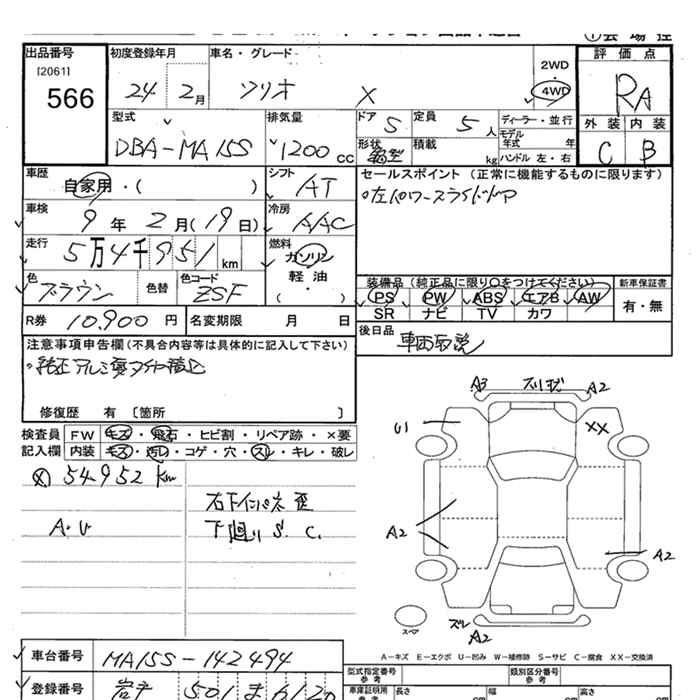 出品番号
[2061]
566
初度登録年月
24 2月
車名・グレード
ソリオ X
2WD
4WD
評価点
RA
外装 内装
C B
型式
DBA-MA15S
排気量
1200 CC
ドア 5
定員 5人
ディーラー・並行
モデル年式 年
形状
積載 kg
ハンドル 左・右
車歴
自家用・( )
シフト
AT
セールスポイント (正常に機能するものに限ります)
・左パワースライドドア
車検
9年 2月(19日)
冷房
AAC
走行
5万4千951 km
燃料
ガソリン
軽・油
( ・ )
色
ブラウン
色替
色コード
ZSF
装備品 (純正品に限り○をつけてください)
新車保証書
PS PW ABS エアB AW
SR ナビ TV カワ
有・無
R券 10,900 円
名変期限 月 日
後日品
注意事項申告欄 (不具合内容等は具体的に記入して下さい)
修復歴 有 〔箇所 〕
検査員 FW キズ・飛石・ヒビ割・リペア跡・×要
記入欄 内装 キズ・汚レ・コゲ・穴・スレ・キレ・破レ
54,952 km
右下インパネ歪
A・U
下廻り S. C.
A3 A2
U1
XX
A2
A2
ズレ
A2
スペア
A-キズ E-エクボ U-凹み W-補修跡 S-サビ C-腐食 XX-交換済
車台番号 MA15S-142494
型式指定番号
参考
類別区分番号
参考
登録番号 501 ま 6120
車庫証明用
参考
長さ cm
幅 cm
高さ cm